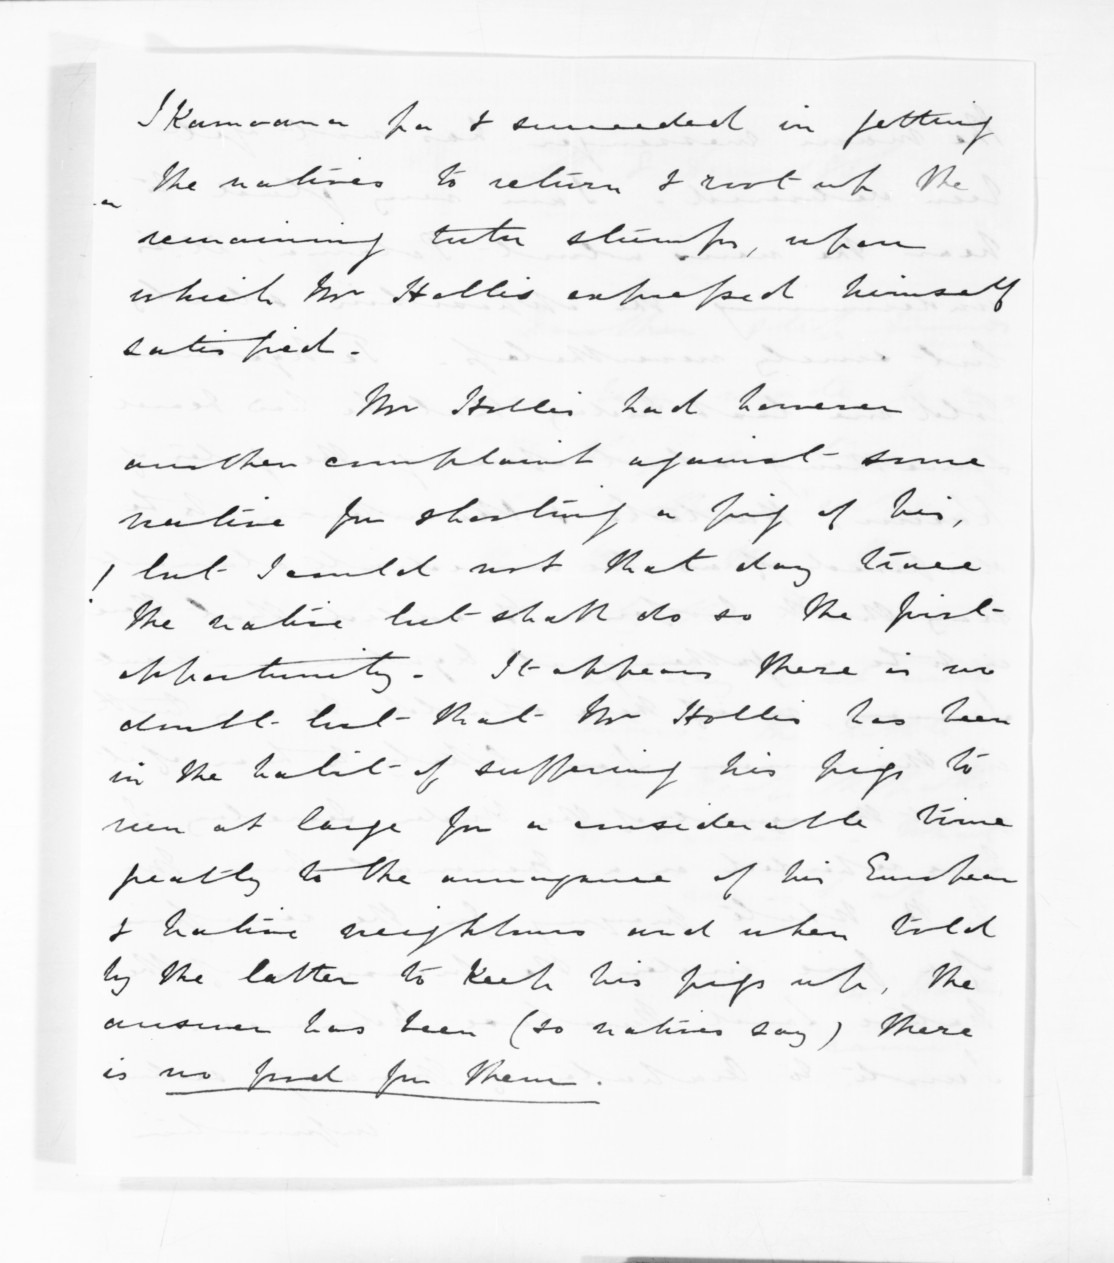 Ikamoana pa & succeeded in getting
the natives to return & root up the
remaining tutu stumps, upon
which Mr Hollis expressed himself
satisfied.
Mr Hollis had however
another complaint against some
native for shooting a pig of his,
but I could not that day trace
the native but shall do so the first
opportunity. It appears there is no
doubt but that Mr Hollis has been
in the habit of suffering his pigs to
run at large for a considerable time
greatly to the annoyance of his European
& native neighbours and when told
by the latter to keep his pigs up, the
answer has been (so natives say) there
is no food for them.